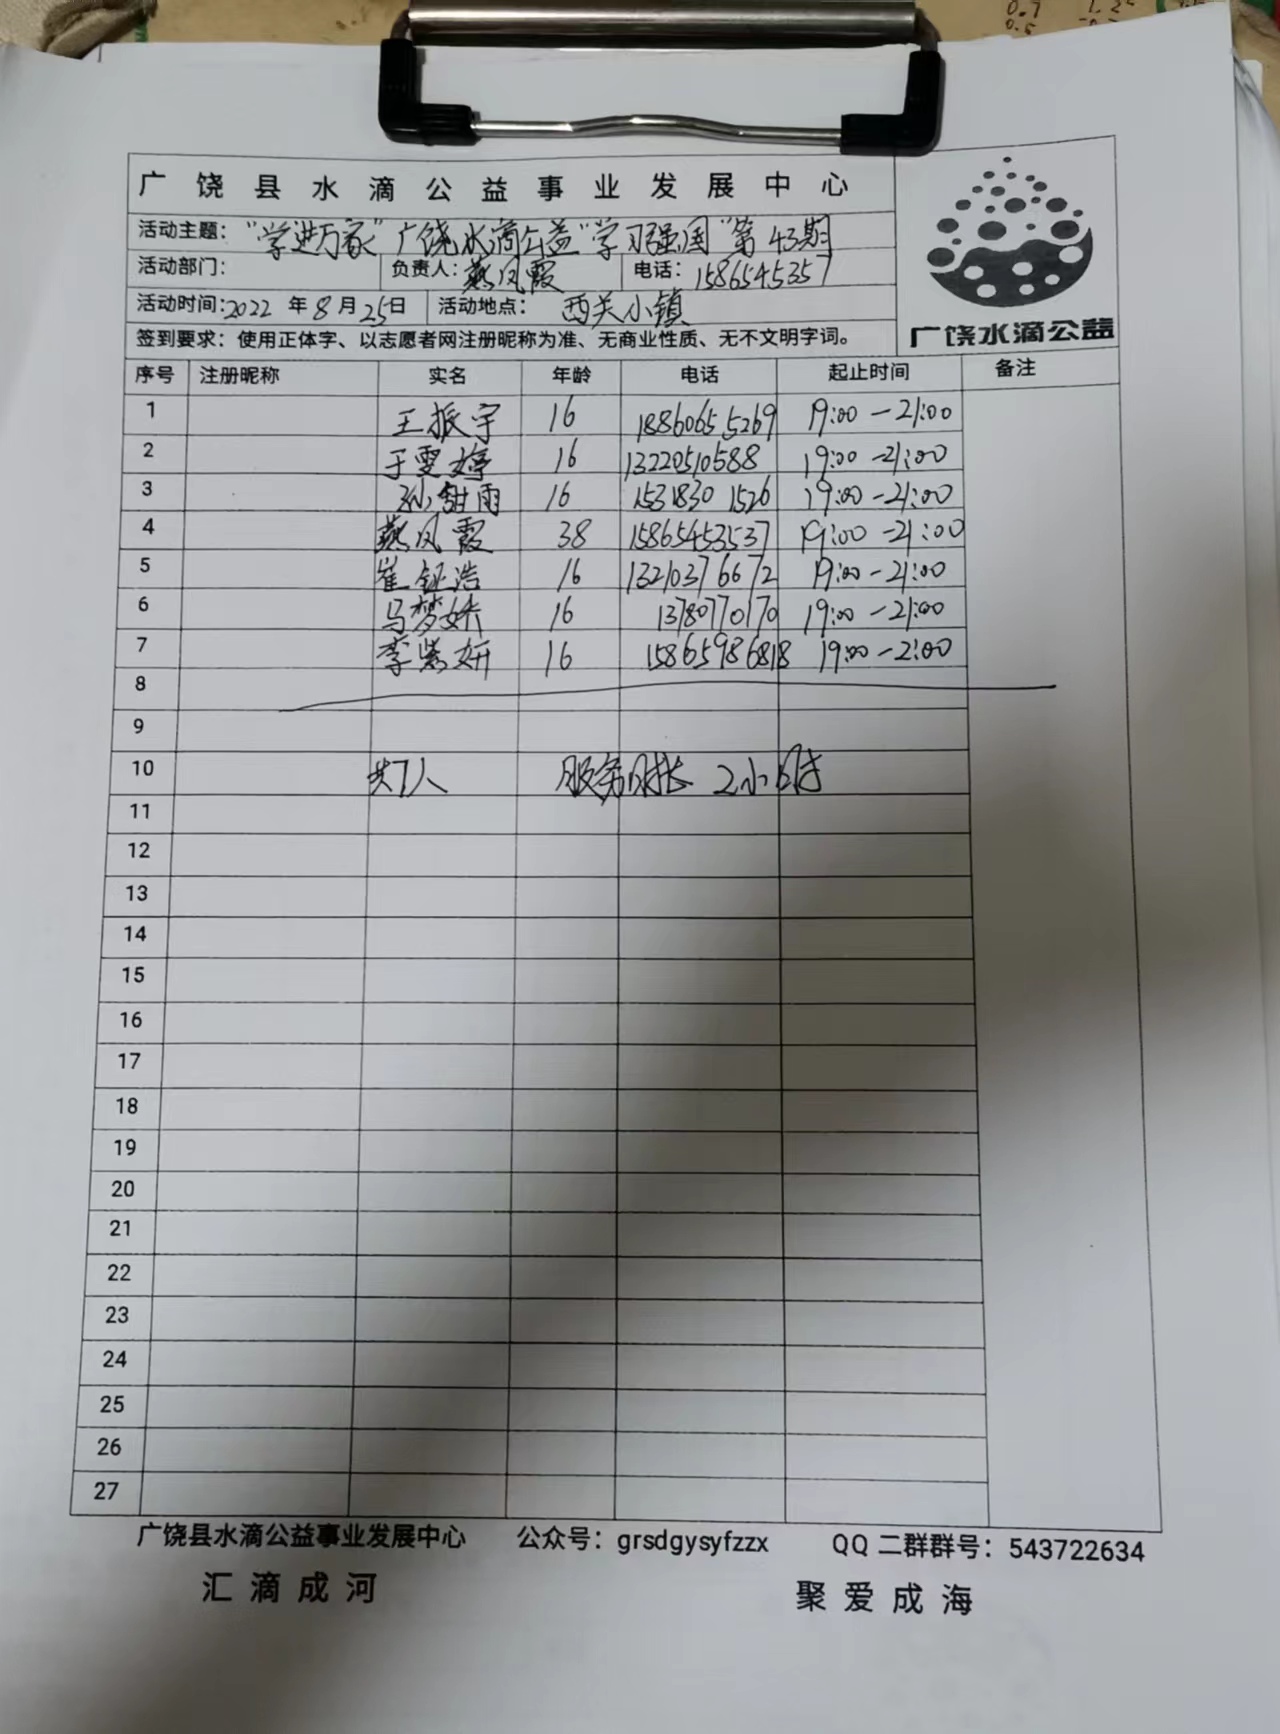 广饶县水滴公益事业发展中心
活动主题："学进万家"广饶水滴公益"学习强国"第43期
活动部门： 负责人：燕凤霞 电话：15865453537
活动时间：2022年8月25日 活动地点：西关小镇
签到要求：使用正体字、以志愿者网注册昵称为准、无商业性质、无不文明字词。
广饶水滴公益
序号 注册昵称 实名 年龄 电话 起止时间 备注
1 王振宇 16 18860655269 19:00-21:00
2 于雯婷 16 13220510588 19:00-21:00
3 孙甜雨 16 15318301526 19:00-21:00
4 燕凤霞 38 15865453537 19:00-21:00
5 崔钲浩 16 13210376672 19:00-21:00
6 马梦娇 16 13780770170 19:00-21:00
7 李紫妍 16 15865986818 19:00-2:00
8
9
10 共7人 服务时长 2小时
11
12
13
14
15
16
17
18
19
20
21
22
23
24
25
26
27
广饶县水滴公益事业发展中心 公众号：grsdgysyfzzx QQ二群群号：543722634
汇滴成河 聚爱成海